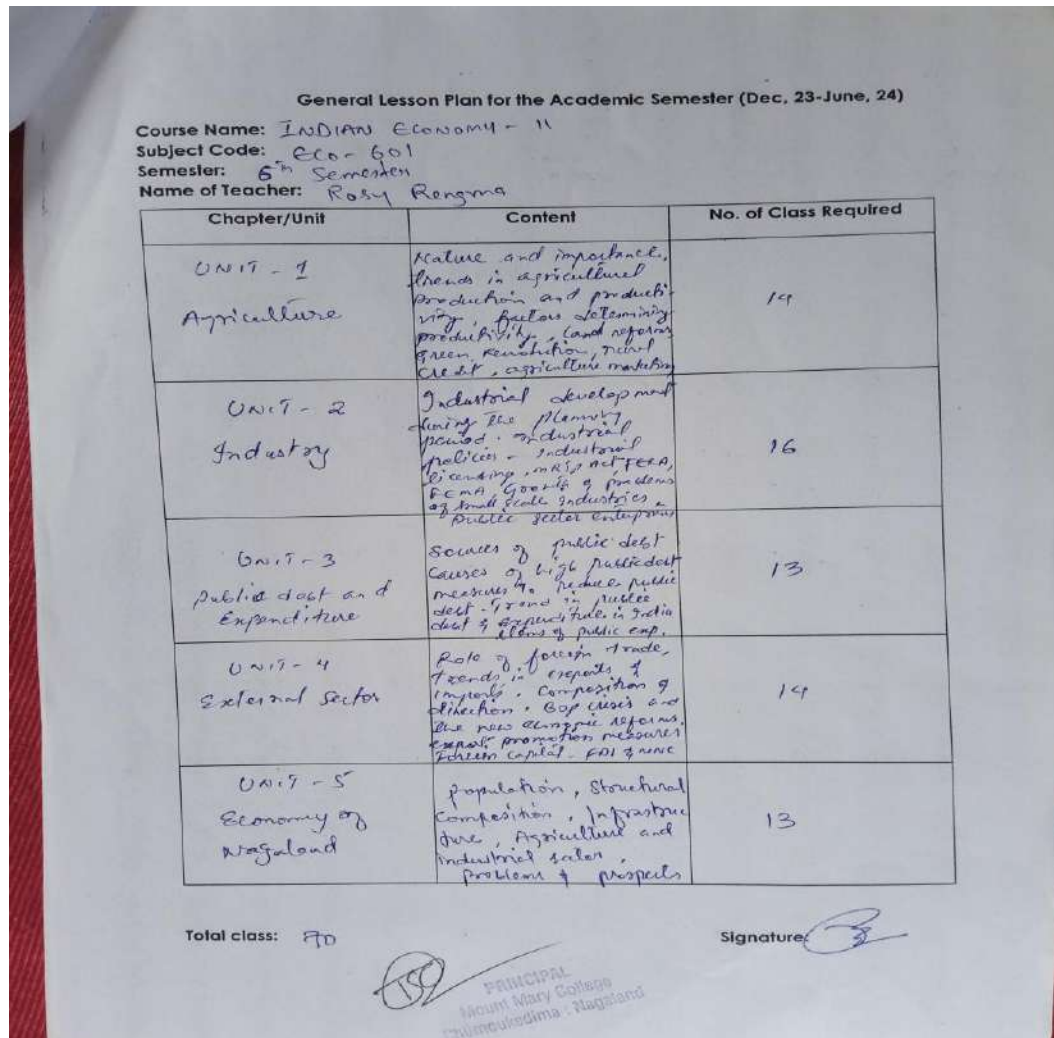 General Lesson Plan for the Academic Semester (Dec, 23-June, 24)
Course Name: INDIAN ECONOMY - II
Subject Code: Eco - 601
Semester: 6th Semester
Name of Teacher: Rosy Rengma
Chapter/Unit Content No. of Class Required
UNIT - 1
Agriculture
Nature and importance,
trends in agricultural
production and producti-
vity, factors determining
productivity, land reforms
green revolution, rural
credit, agriculture marketing
14
UNIT - 2
Industry
Industrial development
during the planning
period. Industrial
policies - Industrial
licensing, MRTP Act, FERA,
FEMA, Growth & problems
of small scale industries.
Public sector enterprises
16
UNIT - 3
Public debt and
Expenditure
Sources of public debt
causes of high public debt
measures to reduce public
debt. Trend in public
debt & expenditure in India
items of public exp.
13
UNIT - 4
External Sector
Role of foreign trade,
trends in exports &
imports. Composition &
direction. BOP crisis and
the new economic reforms.
export promotion measures
Foreign Capital - FDI & MNC
14
UNIT - 5
Economy of
Nagaland
Population, Structural
Composition, Infrastruc
ture, Agriculture and
industrial sector,
problems & prospects
13
Total class: 70
Signature:
PRINCIPAL
Mount Mary College
Chumoukedima : Nagaland